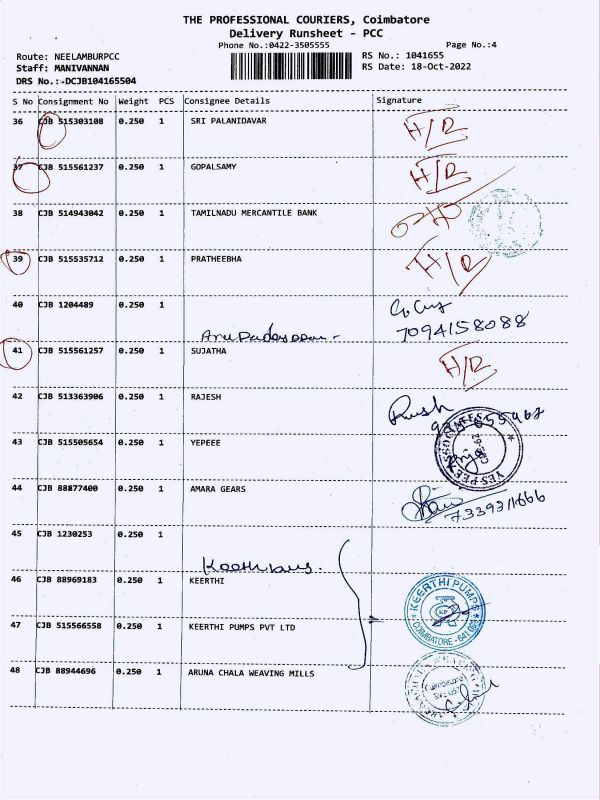 THE PROFESSIONAL COURIERS, Coimbatore
Delivery Runsheet - PCC
Phone No.:0422-3505555 Page No.:4
Route: NEELAMBURPCC RS No.: 1041655
Staff: MANIVANNAN RS Date: 18-Oct-2022
DRS No.:-DCJB104165504
S No Consignment No Weight PCS Consignee Details Signature
36 CJB 515303108 0.250 1 SRI PALANIDAVAR H/R
37 CJB 515561237 0.250 1 GOPALSAMY H/R
38 CJB 514943042 0.250 1 TAMILNADU MERCANTILE BANK
39 CJB 515535712 0.250 1 PRATHEEBHA H/R
40 CJB 1204489 0.250 1
7094158088
41 CJB 515561257 0.250 1 SUJATHA H/R
42 CJB 513363906 0.250 1 RAJESH
43 CJB 515505654 0.250 1 YEPEEE
YES PEE ASSOCIATES
44 CJB 88877400 0.250 1 AMARA GEARS
45 CJB 1230253 0.250 1
46 CJB 88969183 0.250 1 KEERTHI
KEERTHI PUMPS
COIMBATORE - 641 062
47 CJB 515566558 0.250 1 KEERTHI PUMPS PVT LTD
48 CJB 88944696 0.250 1 ARUNA CHALA WEAVING MILLS